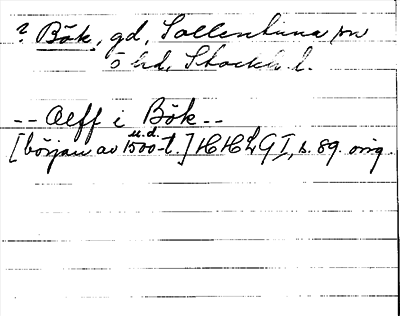 ? Bök, gd, Sollentuna sn
ö hd, Stockh. l.
-- Aeff i Bök --
u.d.
[början av 1500-t.] HHLG I, s. 89. orig.